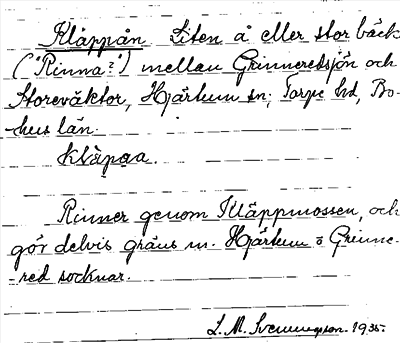 Kläppån Liten å eller stor bäck
("Rinna?") mellan Grinneredsjön och
Storeväktor, Hjärtum sn; Torpe hd, Bo-
hus län.
Klåpaa.
Rinner genom Kläppmossen, och
gör delvis gräns m. Hjärtum o Grinne-
-red socknar.
L. M. Svenungsson. 1935.